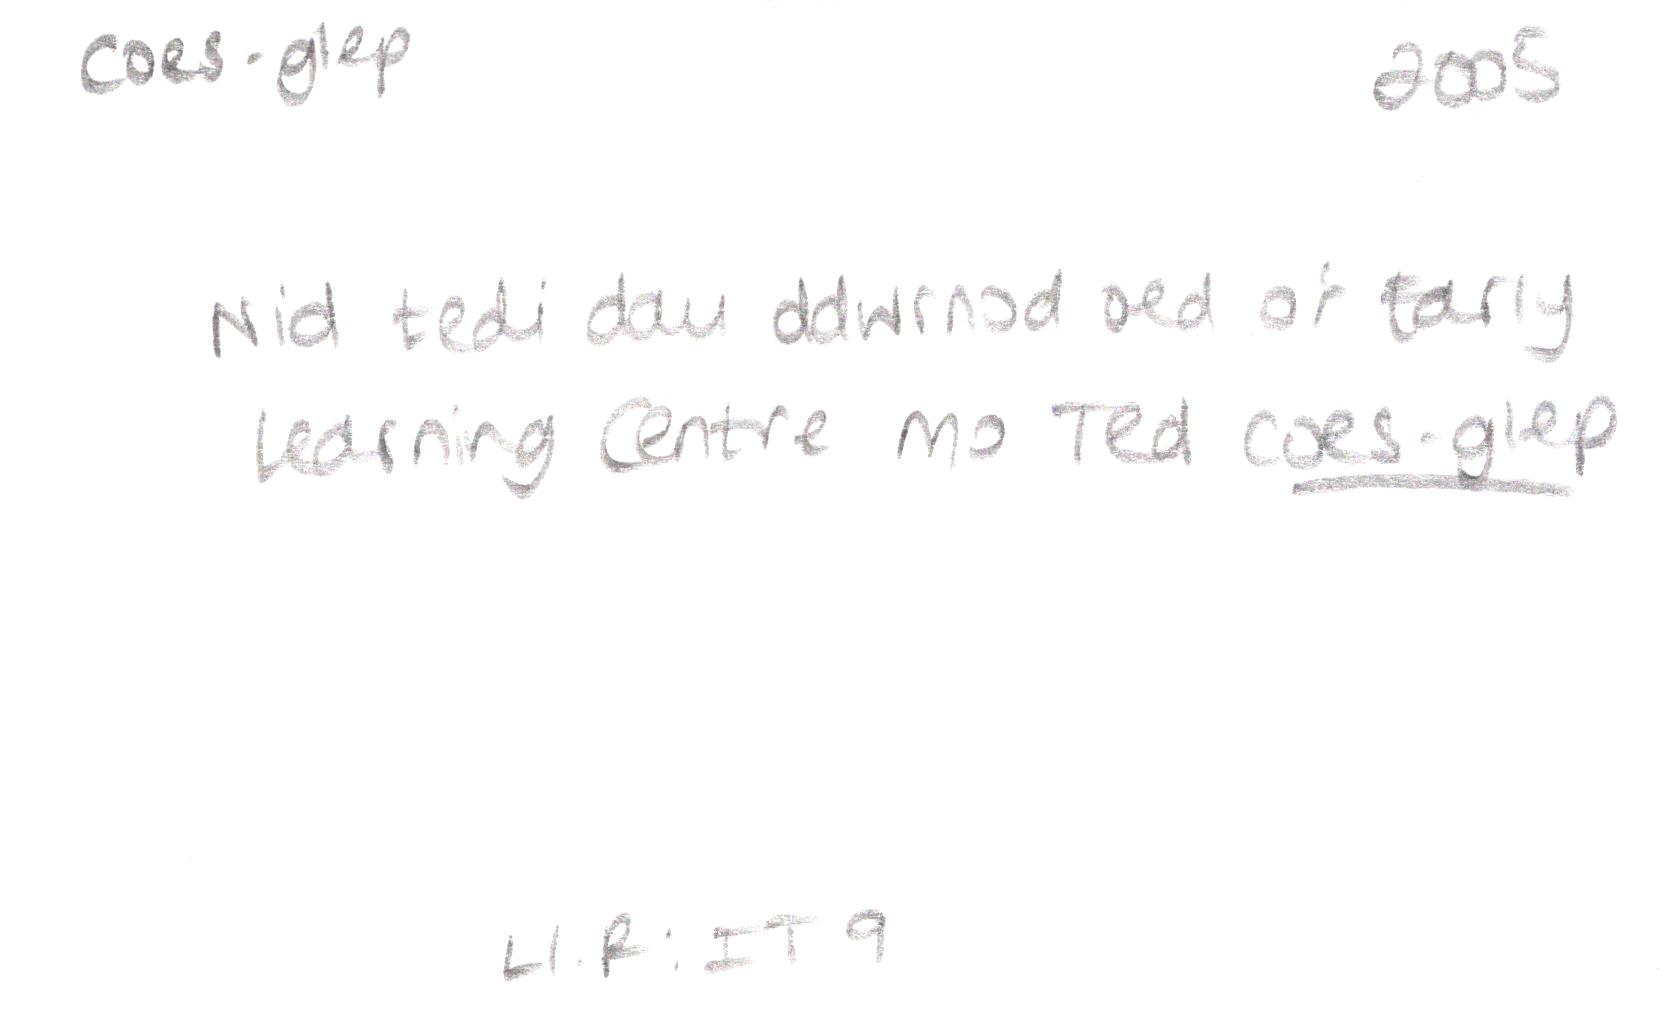 coes-glep 2005
Nid tedi dau ddwrnod oed o'r Early
Learning Centre mo Ted coes-glep
Ll.R: IT 9